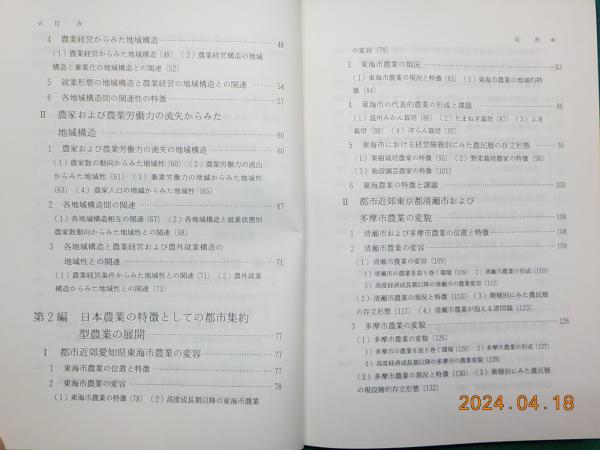 vi 目 次
4 農業経営からみた地域構造 48
(1)農業経営からみた地域構造〔48〕 (2)農業経営構造の地域
構造と兼業化の地域構造との関連〔52〕
5 就業形態の地域構造と農業経営の地域構造との関連 54
6 各地域構造間の関連性の特徴 57
Ⅱ 農家および農業労働力の流失からみた
地域構造 60
1 農家および農業労働力の流失の地域構造 60
(1)農家数の動向からみた地域性〔60〕 (2)農業労働力の流出
からみた地域性〔61〕 (3)兼業労働力の増減からみた地域性
〔63〕 (4)農家人口の増減からみた地域性〔65〕
2 各地域構造間の関連 67
(1)各地域構造相互の関連〔67〕 (2)各地域構造と就業状態別
農家数動向からみた地域性との関連〔68〕
3 各地域構造と農業経営および農外就業構造の
地域性との関連 71
(1)農業経営条件からみた地域性との関連〔71〕 (2)農外就業
構造からみた地域性との関連〔73〕
第2編 日本農業の特徴としての都市集約
型農業の展開 77
Ⅰ 都市近郊愛知県東海市農業の変容 77
1 東海市農業の位置と特徴 77
2 東海市農業の変容 78
(1)東海市農業の特徴〔78〕 (2)高度成長期以降の東海市農業
目 次
の変容〔79〕
3 東海市農業の現況 83
(1)東海市農業の現況と特徴〔83〕 (2)東海市農業の地域的特
徴〔84〕
4 東海市の代表的農業の形成と課題 86
(1)温州みかん栽培〔86〕 (2)たまねぎ栽培〔87〕 (3)ふき
栽培〔88〕 (4)洋らん栽培〔92〕
5 東海市における経営階層別にみた農民層の存立形態 95
(1)果樹栽培農家の特徴〔95〕 (2)野菜栽培農家の特徴〔98〕
(3)施設園芸農家の特徴〔101〕
6 東海農業の特徴と課題 103
Ⅱ 都市近郊東京都清瀬市および
多摩市農業の変貌 108
1 清瀬市および多摩市農業の位置と特徴 108
2 清瀬市農業の変容 109
(1)清瀬市農業の変容〔109〕
1 清瀬市の農業を取り巻く環境〔109〕 2 清瀬市農業の形成〔110〕
3 高度経済成長期以降の清瀬市の農業変容〔112〕
(2)清瀬市農業の現況と特徴〔113〕 (3)階層別にみた農民層
の存立形態〔117〕 (4)清瀬市農業が抱える諸問題〔123〕
3 多摩市農業の変貌 126
(1)多摩市農業の変貌〔126〕
1 多摩市の農業を取り巻く環境〔126〕 2 多摩市農業の形成〔127〕
3 高度経済成長期以降の多摩市農業の変貌〔128〕
(2)多摩市農業の現況と特徴〔130〕 (3)階層別にみた農民層
の現段階的存立形態〔132〕
2024.04.18